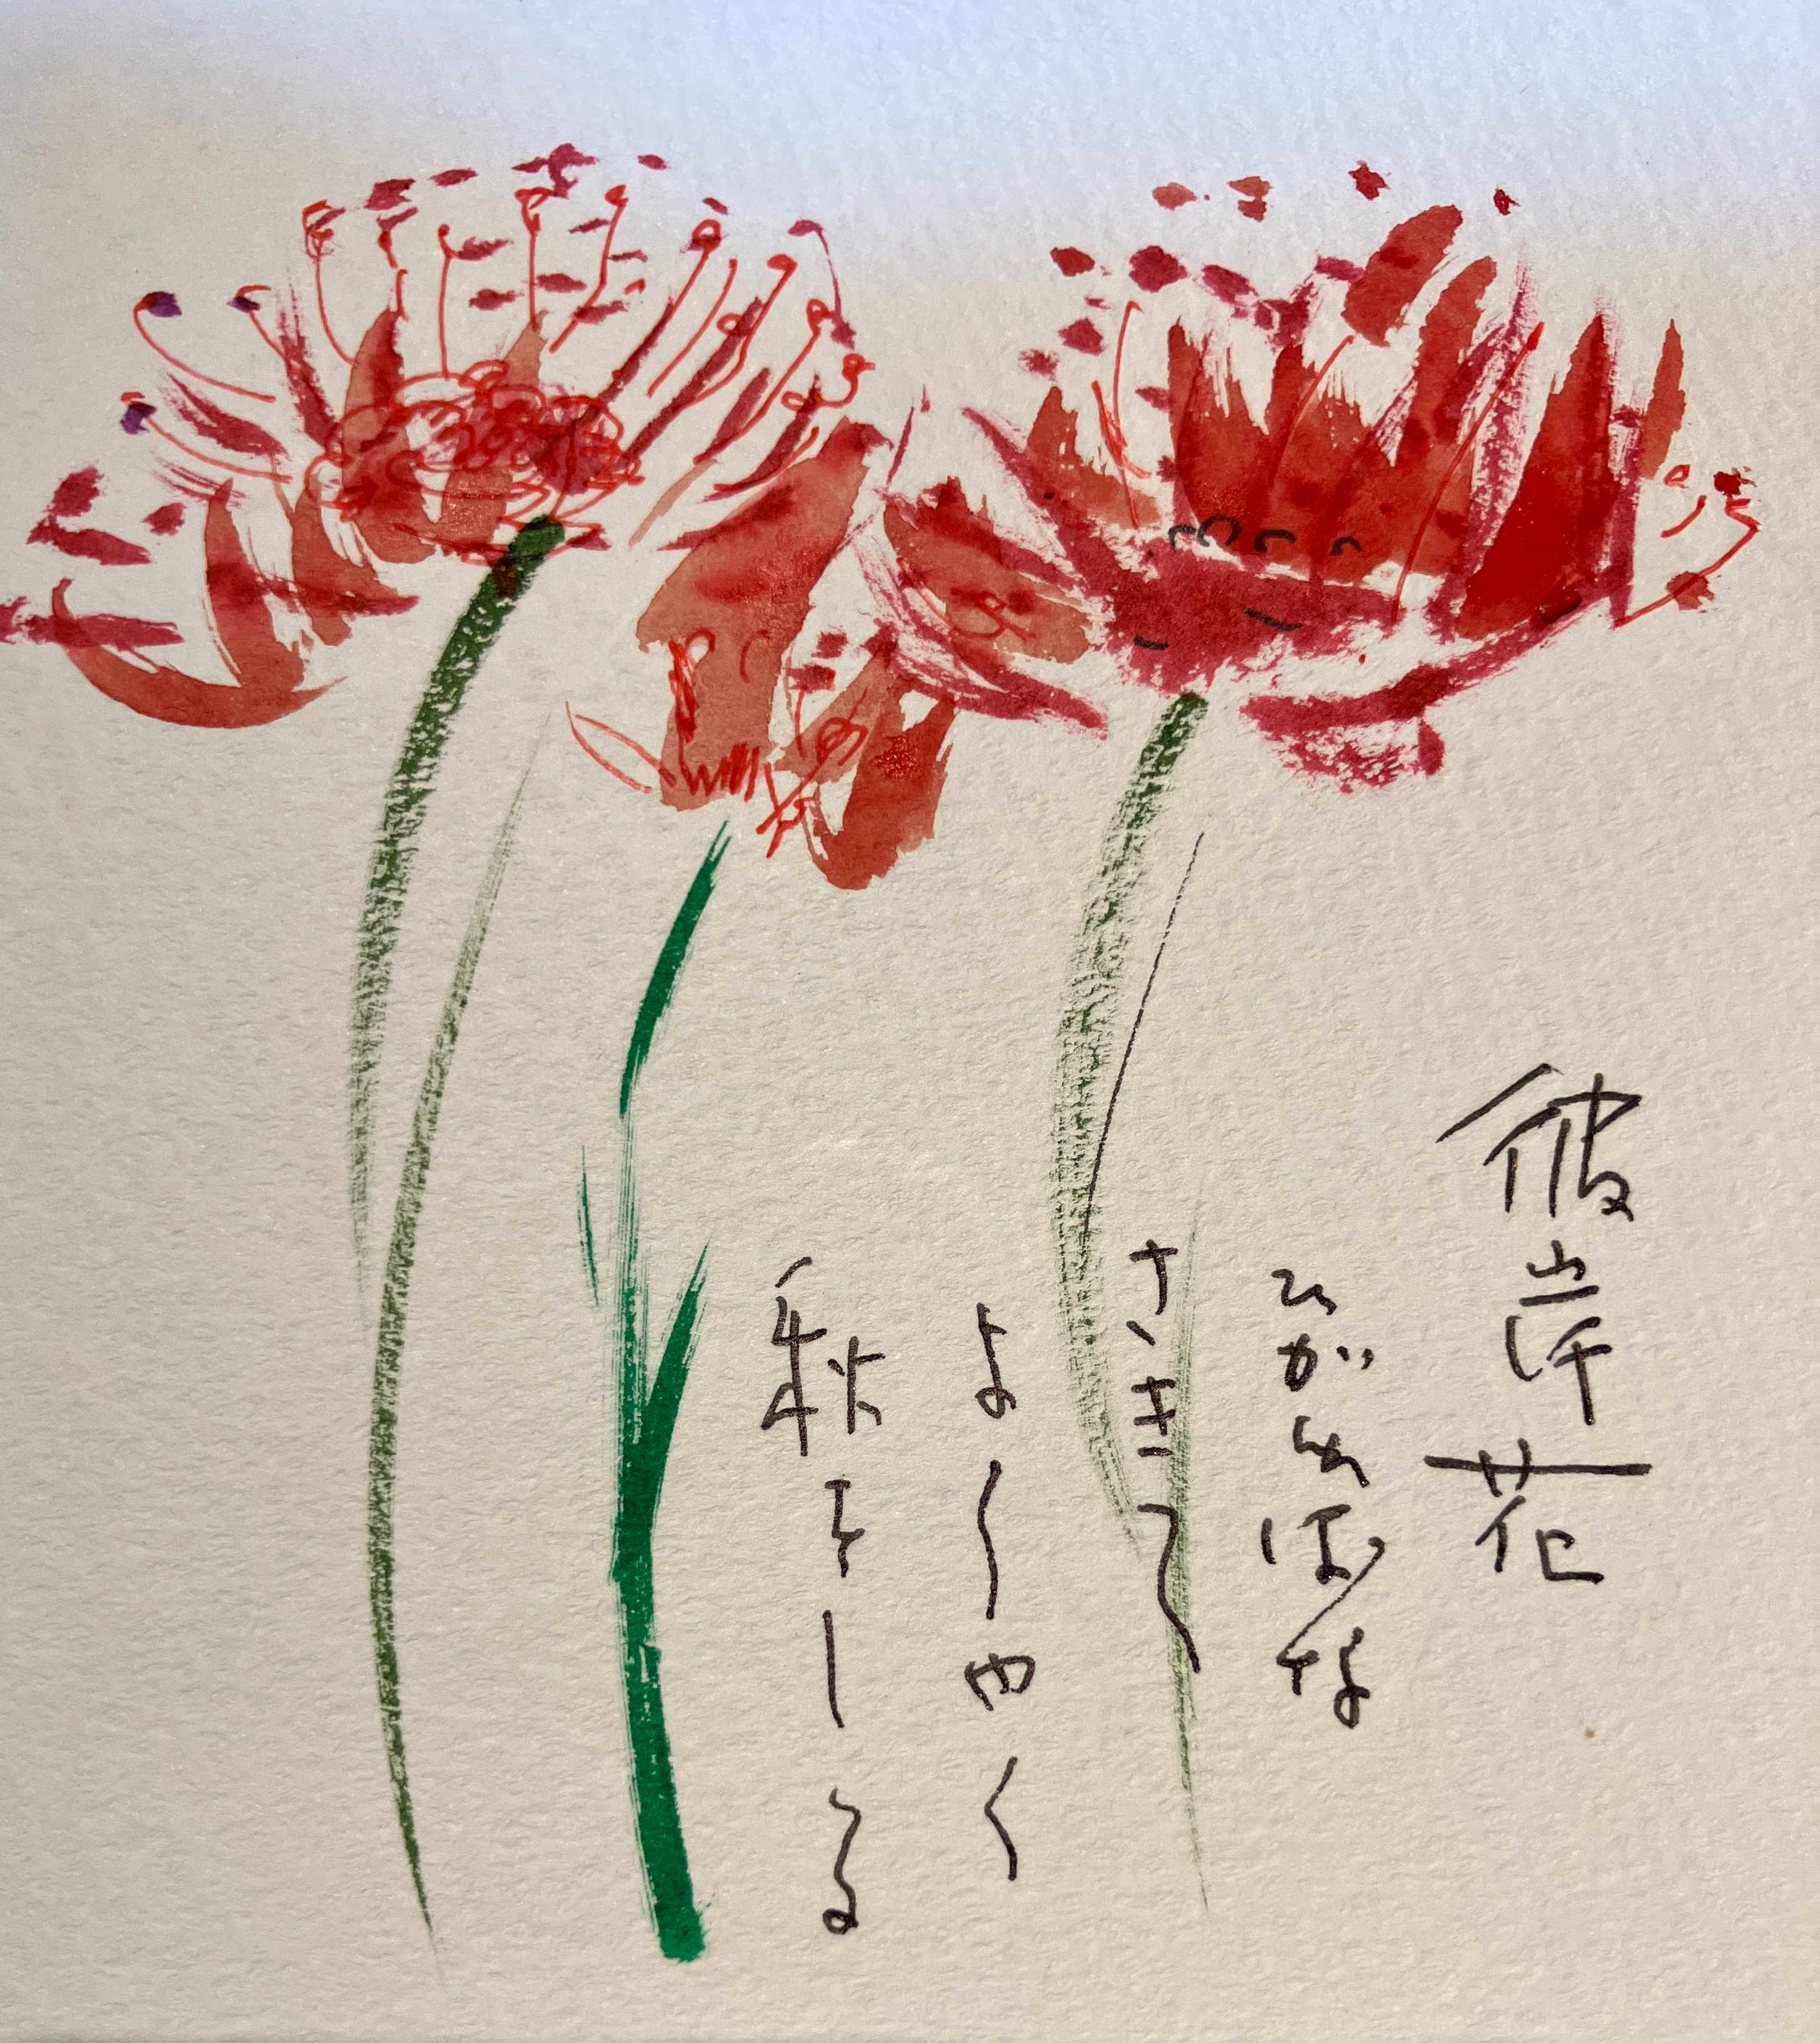 彼岸花
ひがんばな
さきて
よーやく
秋をしる